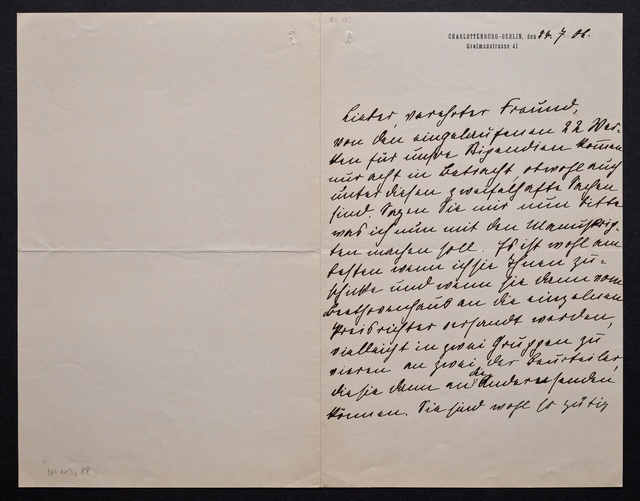 CHARLOTTENBURG-BERLIN, den 24. 7. 06.
Grolmanstrasse 41
Lieber, verehrter Freund,
von den eingelaufenen 22 Wer-
ken für unsre Stipendien kommen
nur acht in Betracht obwohl auch
unter diesen zweifelhafte Sachen
sind. Sagen Sie mir nun bitte
was ich nun mit den Manuskrip-
ten machen soll. Es ist wohl am
besten wenn ich sie Ihnen zu-
schicke und wenn sie dann vom
Beethovenhaus an die einzelnen
Preisrichter versandt werden,
vielleicht in zwei Gruppen zu
vieren an zwei der Beurteiler,
die sie dann an die Anderen senden
können. Sie sind wohl so gütig